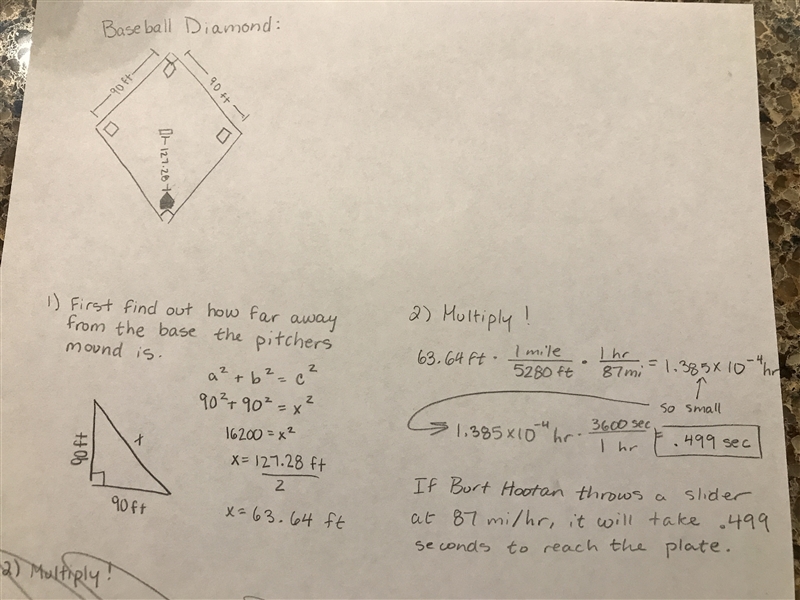 Baseball Diamond:
90 ft
90 ft
127.28
1) First find out how far away
from the base the pitchers
mound is.
a² + b² = c²
90² + 90² = x²
16200 = x²
x = 127.28 ft
2
x = 63.64 ft
90 ft
x
90 ft
2) Multiply!
63.64 ft · 1 mile / 5280 ft · 1 hr / 87 mi = 1.385 x 10⁻⁴ hr
so small
1.385 x 10⁻⁴ hr · 3600 sec / 1 hr = .499 sec
If Burt Hootan throws a slider
at 87 mi/hr, it will take .499
seconds to reach the plate.
2) Multiply!